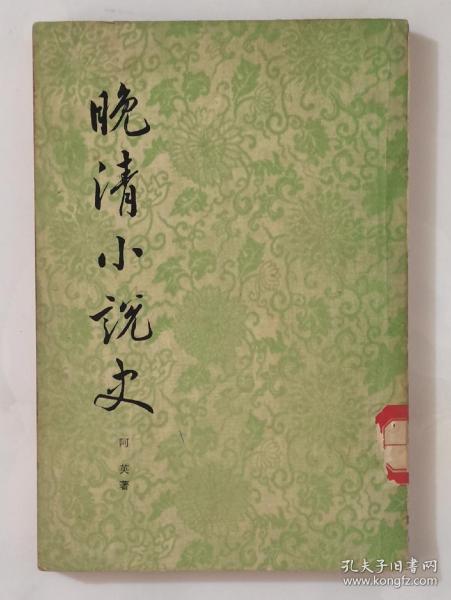 晚清小説史
阿英著
孔夫子旧书网
www.kongfz.com